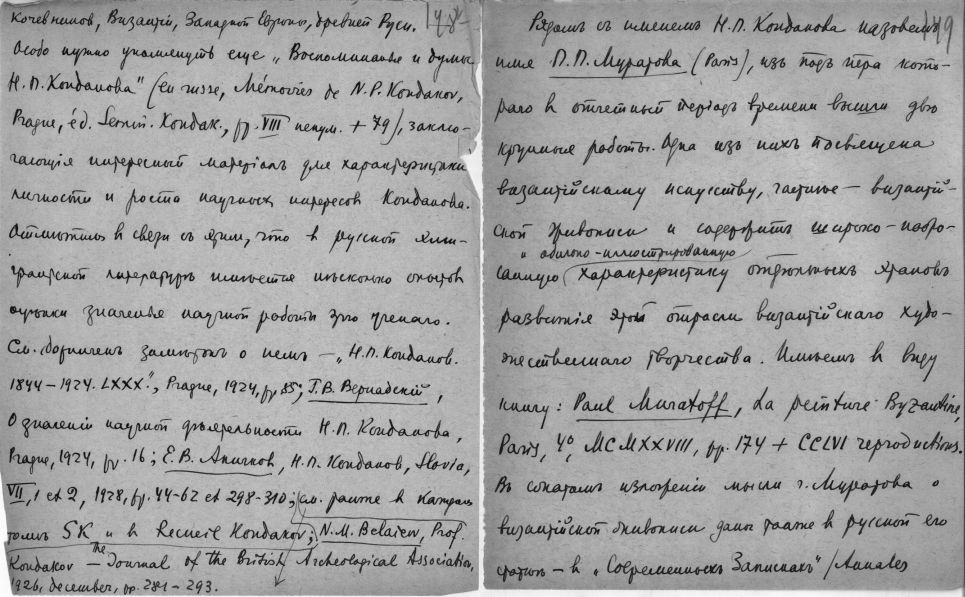 148
кочевников, Византии, Западной Европы, древней Руси.
Особо нужно упомянуть еще „Воспоминанья и думы
Н.П. Кондакова" (en russe, Mémoires de N.P. Kondakov,
Prague, éd. Semin. Kondak., pp. VIII ненум. + 79), заклю-
чающiя интересный матерiалъ для характеристики
личности и роста научныхъ интересов Кондакова.
Отмѣтимъ в связи съ этим, что в русской эми-
грантской литературѣ имѣется нѣсколько опытов
оцѣнки значенья научной работы этого ученаго.
См. сборничек замѣток о нем — „Н.П. Кондаков.
1844–1924. LXXX", Prague, 1924, pp. 85; Г.В. Вернадскiй,
О значенiи научной дѣятельности Н.П. Кондакова,
Prague, 1924, pp. 16; Е.В. Аничков, Н.П. Кондаков, Slavia,
VII, 1 et 2, 1928, pp. 44–62 et 298–310; см. также в каждом
томѣ SK и в Recueil Kondakov; N.M. Belaiew, Prof.
Kondakov — the Journal of the British Archeological Association,
1926, december, pp. 281–293.
149
Рядомъ съ именемъ Н.П. Кондакова назовемъ
имя П.П. Муратова (Paris), изъ подъ пера кото-
раго в отчетный перiодъ времени вышли двѣ
крупныя работы. Одна изъ нихъ посвящена
византiйскому искусству, частнѣе — византiй-
ской живописи и содержитъ широко-набро-
и обильно-иллюстрированную
санную характеристику отдѣльныхъ этаповъ
развитiя этой отрасли византiйскаго худо-
жественнаго творчества. Имѣем в виду
книгу: Paul Muratoff, La peinture Byzantine,
Paris, 4º, MCMXXVIII, pp. 174 + CCLVI reproductions.
Въ сжатомъ изложенiи мысли г. Муратова о
византiйской живописи даны также в русской его
статьѣ — в „Современныхъ Запискахъ" /Annales